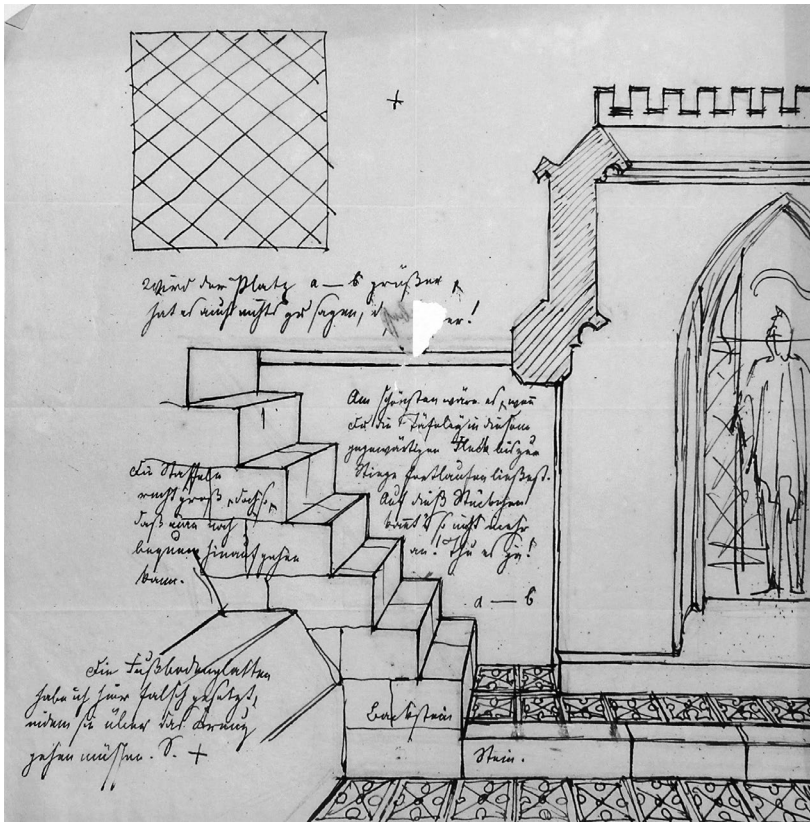 +
Wird der Platz a — b größer,
hat es auch nichts zu sagen, er!
Am schönsten wäre es, wenn
Du die Täfeley in diesem
gegenwärtigen bis zur
Stiege fortlaufen ließest.
Auf dieß Stückchen
kommt's so nicht mehr
an! Thu es ja!
Die Staffeln
recht groß, doch so,
daß man noch
bequem hinauf gehen
kann.
a — b
Die Fußbodenplatten
habe ich hier falsch gesetzt,
indem sie über das Kreuz
gehen müssen. S. +
Backstein
Stein.